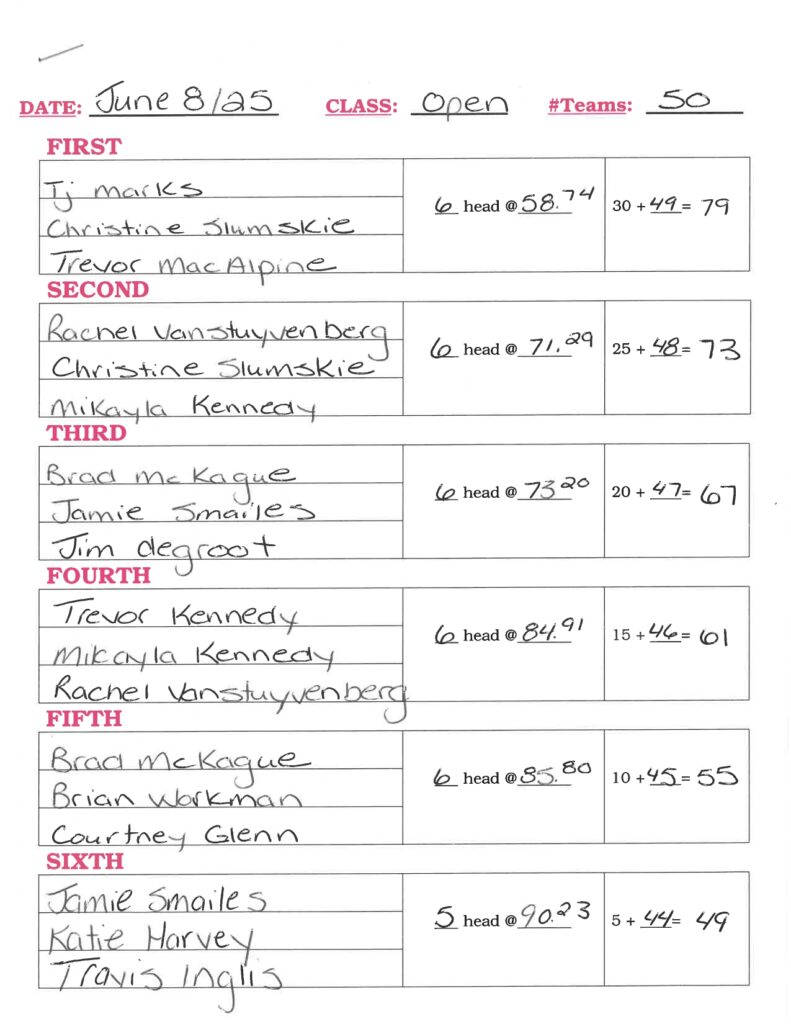 DATE: June 8/25 CLASS: Open #Teams: 50
FIRST
Tj Marks
6 head @ 58.74 30 + 49 = 79
Christine Slumskie
Trevor MacAlpine
SECOND
Rachel Vanstuyvenberg
6 head @ 71.29 25 + 48 = 73
Christine Slumskie
Mikayla Kennedy
THIRD
Brad McKague
6 head @ 73.20 20 + 47 = 67
Jamie Smailes
Jim degroot
FOURTH
Trevor Kennedy
6 head @ 84.91 15 + 46 = 61
Mikayla Kennedy
Rachel Vanstuyvenberg
FIFTH
Brad McKague
6 head @ 85.80 10 + 45 = 55
Brian Workman
Courtney Glenn
SIXTH
Jamie Smailes
5 head @ 90.23 5 + 44 = 49
Katie Harvey
Travis Inglis